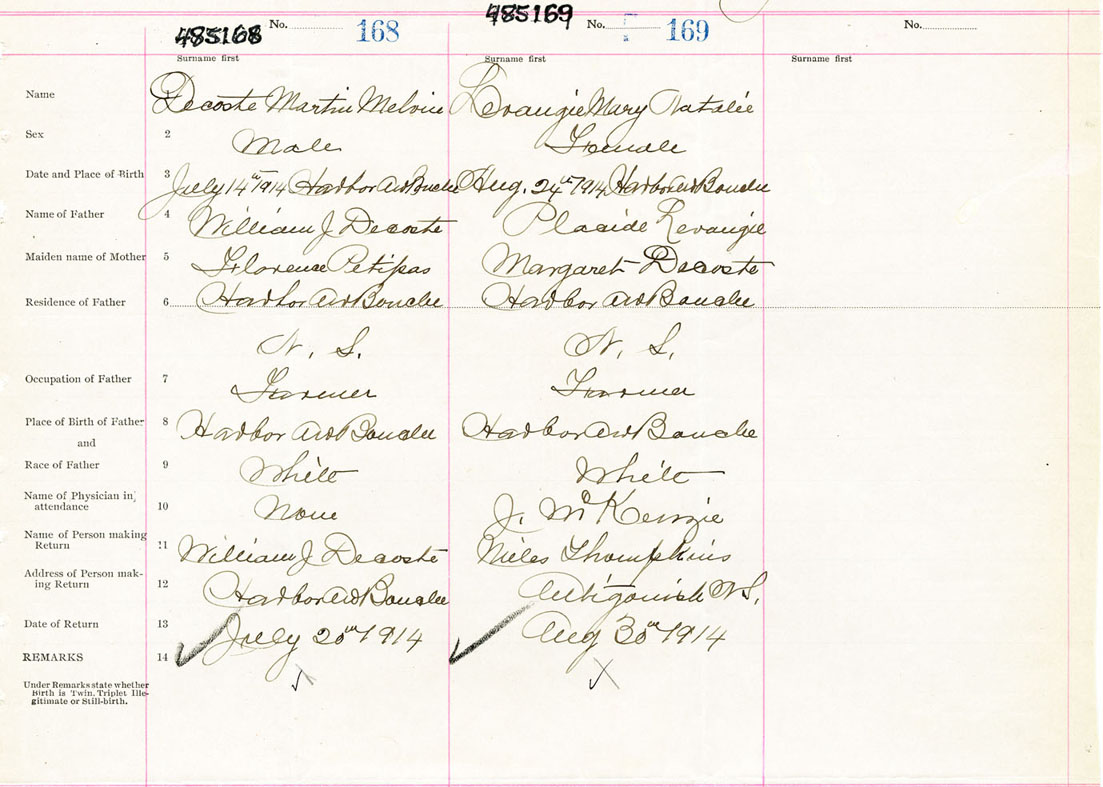 485168 No. 168 485169 No. 169 No.
Surname first Surname first Surname first
Name 1 Decoste Martin Melvin Levangie Mary Natalie
Sex 2 Male Female
Date and Place of Birth 3 July 14th 1914 Harbor Au Bouche Aug. 24th 1914 Harbor Au Bouche
Name of Father 4 William J Decoste Placide Levangie
Maiden name of Mother 5 Florence Petipas Margaret Decoste
Residence of Father 6 Harbor Au Bouche Harbor Au Bouche
N. S. N. S.
Occupation of Father 7 Farmer Farmer
Place of Birth of Father 8 Harbor Au Bouche Harbor Au Bouche
and
Race of Father 9 White White
Name of Physician in
attendance 10 None J. McKenzie
Name of Person making
Return 11 William J Decoste Miles Thompkins
Address of Person mak-
ing Return 12 Harbor Au Bouche Antigonish N S.
Date of Return 13 July 20th 1914 Aug 30th 1914
REMARKS 14
Under Remarks state whether
Birth is Twin, Triplet Ille-
gitimate or Still-birth.